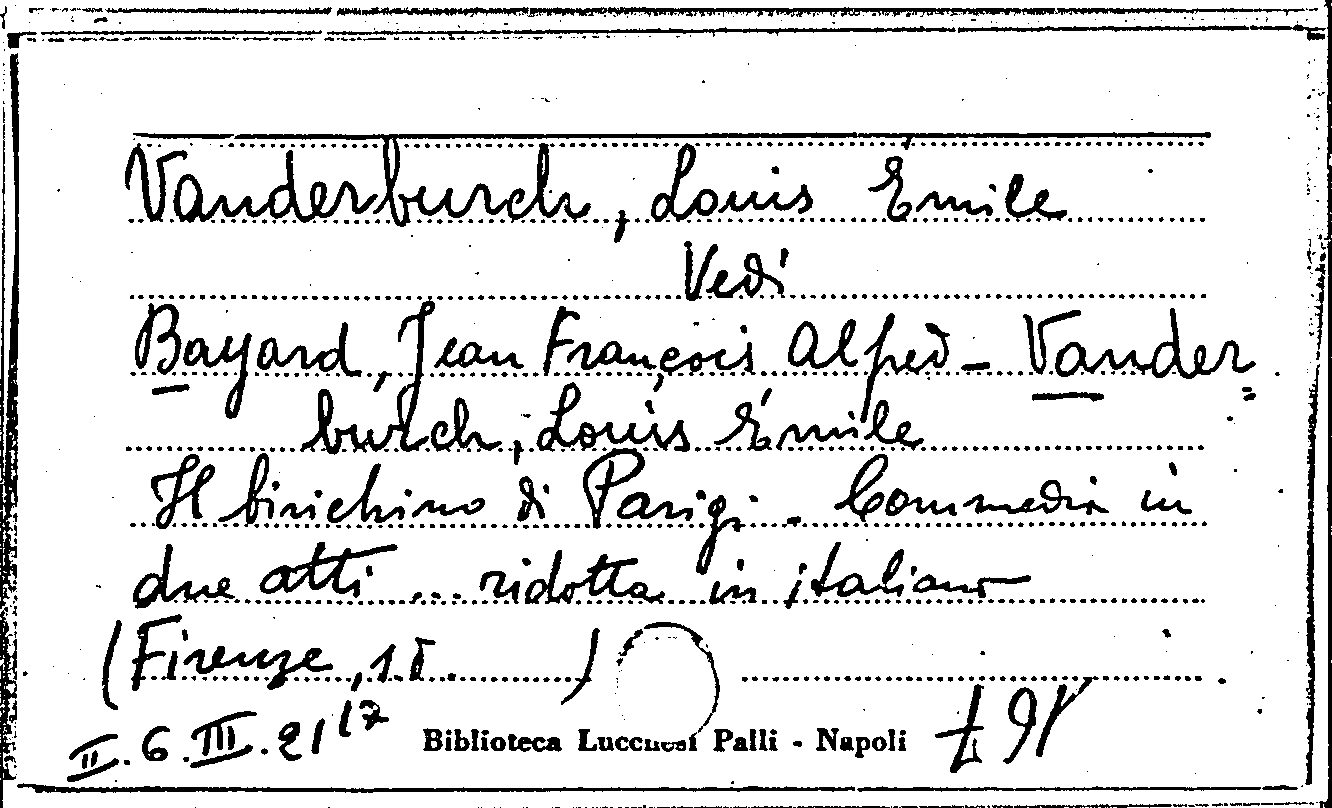 Vanderburch, Louis Émile
Vedi
Bayard, Jean François Alfred - Vander=
burch, Louis Émile
Il birichino di Parigi. Commedia in
due atti ... ridotta in italiano
(Firenze, s.d. )
II.6.III.21 17
Biblioteca Lucchesi Palli - Napoli